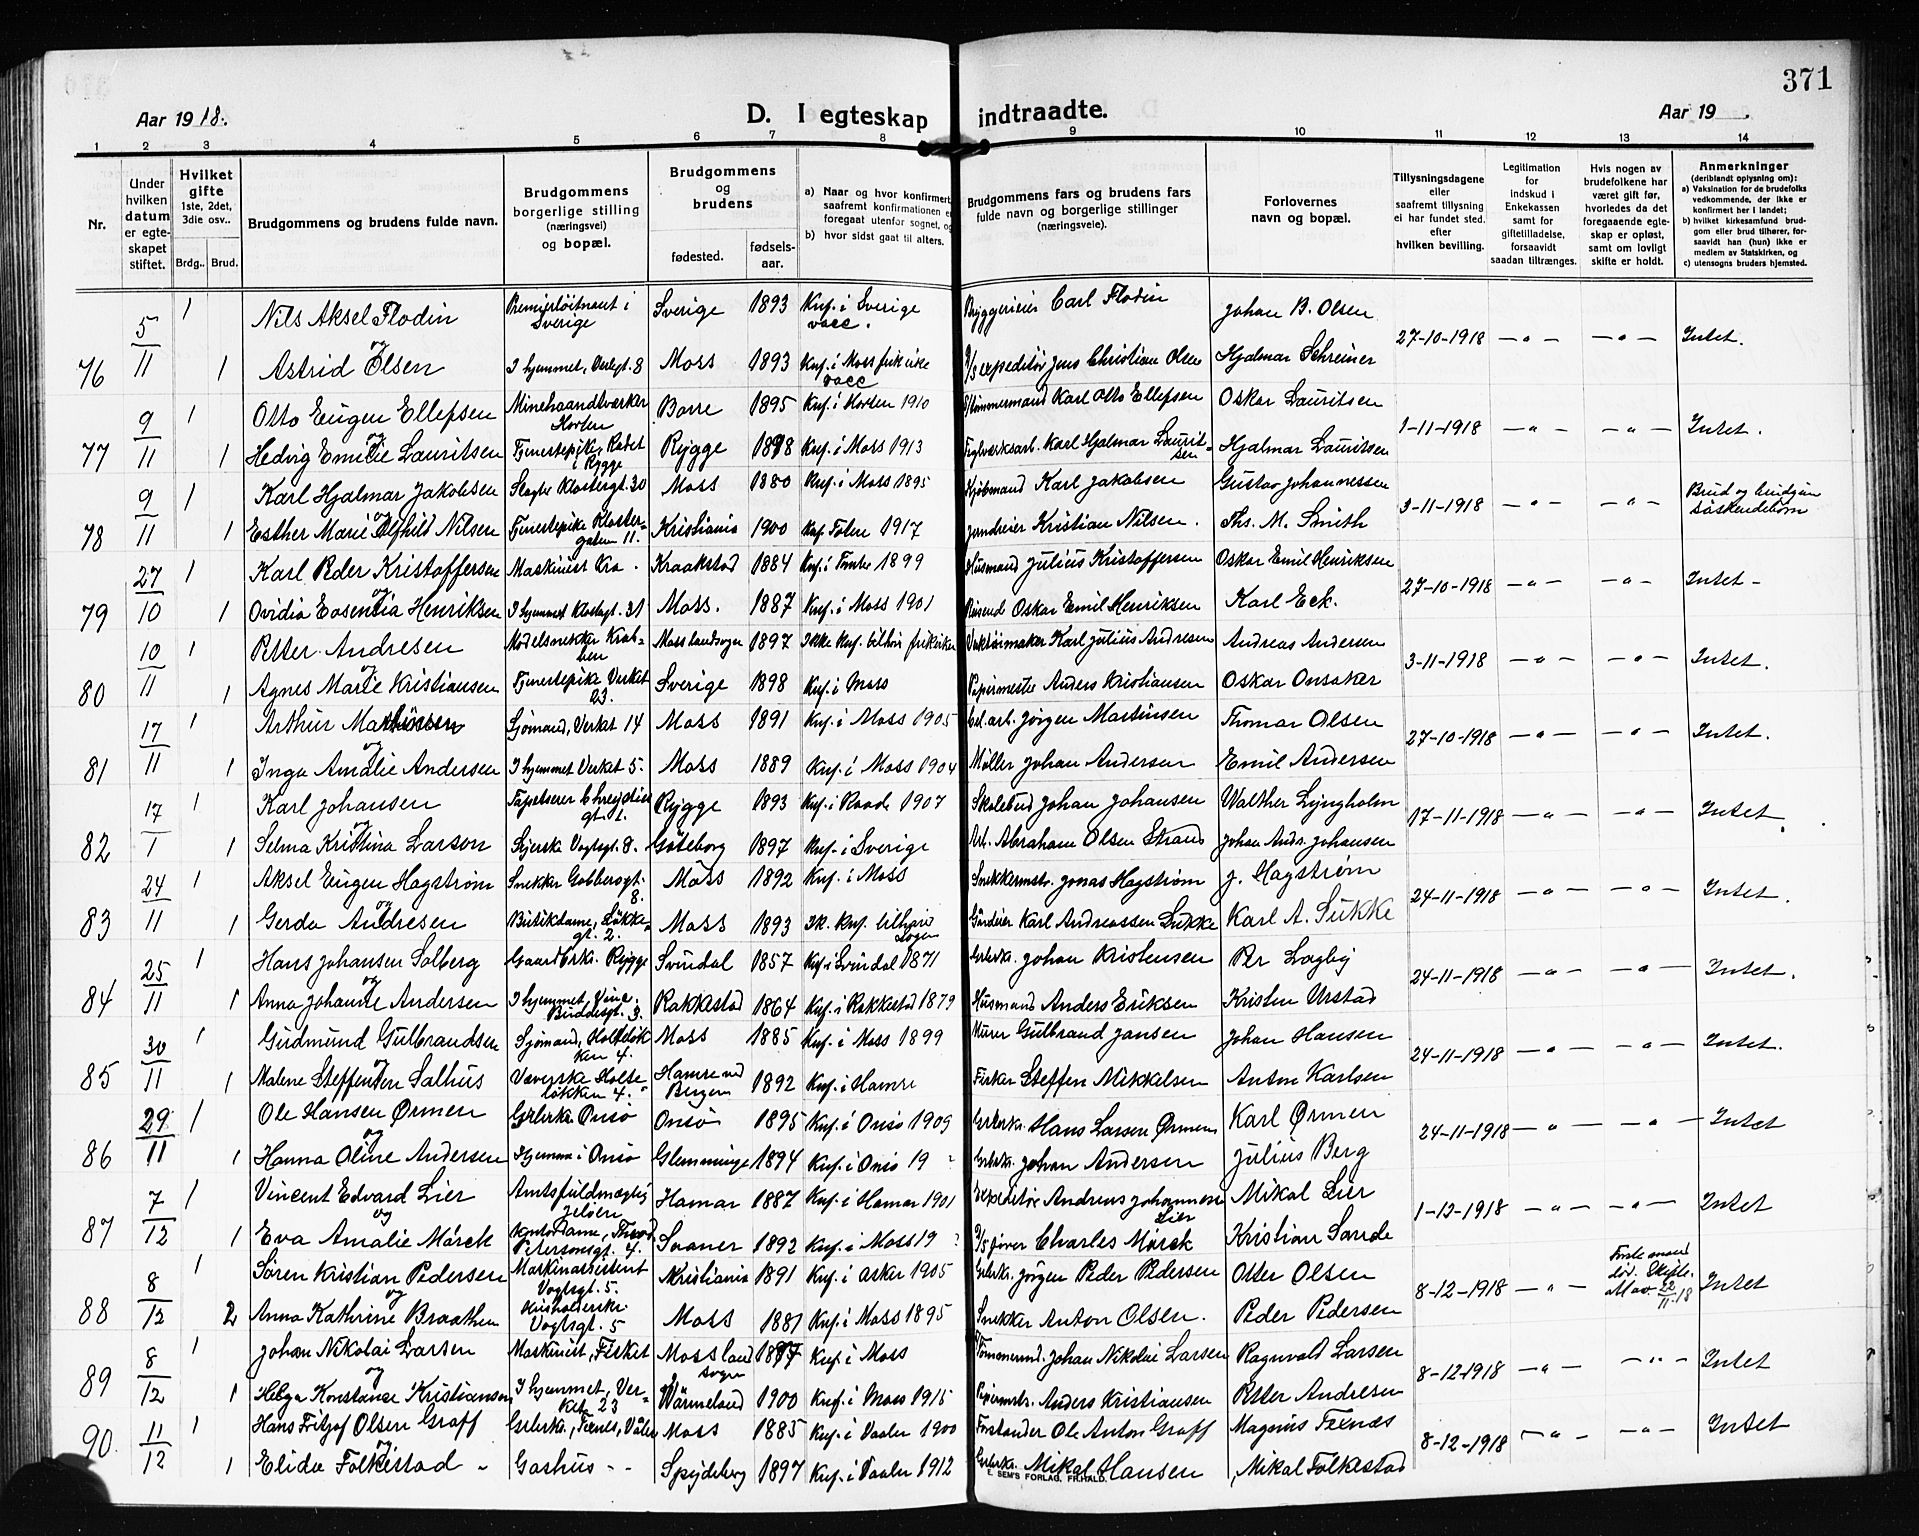 371
Aar 1918.
D. I egteskap indtraadte.
Aar 19
1 2 3 4 5 6 7 8 9 10 11 12 13 14
Nr.
Under hvilken datum er egteskapet stiftet.
Hvilket gifte 1ste, 2det, 3die osv..
Brdg.. Brud.
Brudgommens og brudens fulde navn.
Brudgommens borgerlige stilling (næringsvei) og bopæl.
Brudgommens og brudens
fødested.
fødselsaar.
a) Naar og hvor konfirmert, saafremt konfirmationen er foregaat utenfor sognet, og
b) hvor sidst gaat til alters.
Brudgommens fars og brudens fars fulde navn og borgerlige stillinger (næringsveie).
Forlovernes navn og bopæl.
Tillysningsdagene eller saafremt tillysning ei har fundet sted. efter hvilken bevilling.
Legitimation for indskud i Enkekassen samt for giftetilladelse, forsaavidt saadan tiltrænges.
Hvis nogen av brudefolkene har været gift før, hvorledes da det foregaaende egteskap er opløst, samt om lovligt skifte er holdt.
Anmerkninger (deriblandt oplysning om):
a) Vaksination for de brudefolks vedkommende, der ikke er konfirmert her i landet;
b) hvilket kirkesamfund brudgom eller brud tilhører, forsaavidt han (hun) ikke er medlem av Statskirken, og
c) utensogns bruders hjemsted.
76 5/11 1 Nils Aksel Flodin Premierløitnant i Sverige Sverige 1893 Knf. i Sverige vacc. Bryggerieier Carl Flodin Johan B. Olsen 27-10-1918 —〃— —〃— Intet.
og
1 Astrid Olsen I hjemmet, Verlegt. 8 Moss 1893 Knf. i Moss frikirke vacc expeditør Jens Christian Olsen Hjalmar Schreiner
77 9/11 1 Otto Eugen Ellefsen Minehaandtværker Horten Borre 1895 Knf. i Horten 1910 Tømmermand Karl Otto Ellefsen Oskar Lauritsen 1-11-1918 —〃— —〃— Intet.
og
1 Hedvig Emilie Lauritsen Tjenestepike, Rødet i Rygge Rygge 1898 Knf. i Moss 1913 Teglværksarb. Karl Hjalmar Lauritsen Hjalmar Lauritsen
78 9/11 1 Karl Hjalmar Jakobsen Slagter Klostergt. 30 Moss 1880 Knf. i Moss 1895 Kjøbmand Karl Jakobsen Gustav Johannessen 3-11-1918 —〃— —〃— Brud og brudgom søskendebørn
og
1 Esther Marie Alfhild Nilsen Tjenestepike Klostergaten 11. Kristiania 1900 Knf. Solen 1917 Kristian Nilsen. Ths. M. Smith
79 27/10 1 Karl Peder Kristoffersen Maskinist Kra. Kraakstad 1884 Knf. i Tomter 1899 Husmand Julius Kristoffersen Oskar Emil Henriksen 27-10-1918 —〃— —〃— Intet -
og
1 Ovidia Eosentia Henriksen I hjemmet Klostergt. 31 Moss. 1887 Knf. i Moss 1901 Reisende Oskar Emil Henriksen Karl Eek.
80 10/11 1 Petter Andresen Modelsnekker Krabben Moss landsogn 1897 Ikke Knf. tilhør frikirken Verktøimaker Karl Julius Andresen Andreas Andersen 3-11-1918 —〃— —〃— Intet.
og
1 Agnes Marie Kristiansen Tjenestepike Verket 23. Sverige 1898 Knf. i Moss Papirmester Anders Kristiansen Oskar Onsaker
81 17/11 1 Arthur Martinsen Sjømand, Verket 14 Moss 1891 Knf. i Moss 1905 Cel. arb. Jørgen Martinsen Thomas Olsen 27-10-1918 —〃— —〃— Intet.
og
1 Inga Amalie Andersen I hjemmet Verket 5. Moss 1889 Knf. i Moss 1904 Møller Johan Andersen Emil Andersen
82 17/1 1 Karl Johansen Tapetserer Chrystiesgt. 1. Rygge 1893 Knf. i Raade 1907 Skolebud Johan Johansen Walther Lyngholm 17-11-1918 —〃— —〃— Intet.
og
1 Selma Kristina Larson Syerske Vogtsgt. 8. Göteborg 1897 Knf. i Sverige Arb. Abraham Olsen Strand Johan Andr. Johansen
83 24/11 1 Aksel Eugen Hagstrøm Snekker Gubberogt. 8. Moss 1892 Knf. i Moss Snekkermstr. Jonas Hagstrøm J. Hagstrøm 24-11-1918 —〃— —〃— Intet.
og
1 Gerda Andresen Butikdame, Løkkegt. 2. Moss 1893 Ik. Knf. tilhører sogn Gårdeier Karl Andreassen Sukke Karl A. Sukke
84 25/11 1 Hans Johansen Solberg Gaardbrk. Rygge Svindal 1857 Knf. i Svindal 1871 Grbrk. Johan Kristensen Per Løgby 24-11-1918 —〃— —〃— Intet.
og
1 Anna Johanne Andersen I hjemmet, Vinc. Buddesgt. 3. Rakkestad 1864 Knf. i Rakkestad 1879 Husmand Anders Eriksen Kristen Urstad
85 30/11 1 Gudmund Gulbrandsen Sjømand, Holteløkken 4. Moss 1885 Knf. i Moss 1899 Murer Gulbrand Jansen Johan Hansen 24-11-1918 —〃— —〃— Intet.
og
1 Malene Steffensen Salhus Væverske Holteløkken 4. Hamre ved Bergen 1892 Knf. i Hamre Fisker Steffen Mikkelsen Anton Karlsen
86 29/11 1 Ole Hansen Ørmen Grbrk. Onsø Onsø 1895 Knf. i Onsø 1909 Grbrk. Hans Larsen Ørmen Karl Ørmen 24-11-1918 —〃— —〃— Intet
og
1 Hanna Oline Andersen Hjemme i Onsø Glemminge 1894 Knf. i Onsø 19 ? Grbrk. Johan Andersen Julius Berg
87 7/12 1 Vincent Edvard Lier Amtsfuldmægtig Jeløen Hamar 1887 Knf. i Hamar 1901 Expeditør Andreas Johannesen Lier Mikal Lier 1-12-1918 —〃— —〃— Intet
og
1 Eva Amalie Mørck Kontordame, Theod. Petersonsgt. 4. Soaner 1892 Knf. i Moss 19 ? fører Charles Mørck Kristian Sande
88 8/12 1 Søren Kristian Pedersen Maskinassistent Vogtsgt. 5. Kristiania 1891 Knf. i Asker 1905 Grbrk. Jørgen Peder Pedersen Otter Olsen 8-12-1918 —〃— Første mand død. Skifte. M av 22/11-18 Intet
og
2 Anna Kathrine Braathen Husholderske Vogtsgt. 5 Moss 1881 Knf. i Moss 1895 Snekker Anton Olsen. Peder Pedersen
89 8/12 1 Johan Nikolai Larsen Maskinist, Fisket Moss landsogn 1897 Knf. i Moss Tømmermd. Johan Nikolai Larsen Ragnvald Larsen 8-12-1918 —〃— —〃— Intet
og
1 Helga Konstanse Kristiansen I hjemmet, Verket 23 Wärmeland 1900 Knf. i Moss 1915 Papirmstr. Anders Kristiansen Petter Andresen
90. 11/12 1 Hans Fritjof Olsen Graff Grbrk., Texnes, Våler Moss 1885 Knf. i Vaaler 1900 Forstander Ole Anton Graff Magnus Texnæs 8-12-1918 —〃— —〃— Intet
og
1 Elida Folkestad Gashus Spydeberg 1897 Knf. i Vaaler 1912 Grbrk. Mikal Hansen Mikal Folkestad
E. SEM'S FORLAG, FR.HALD.